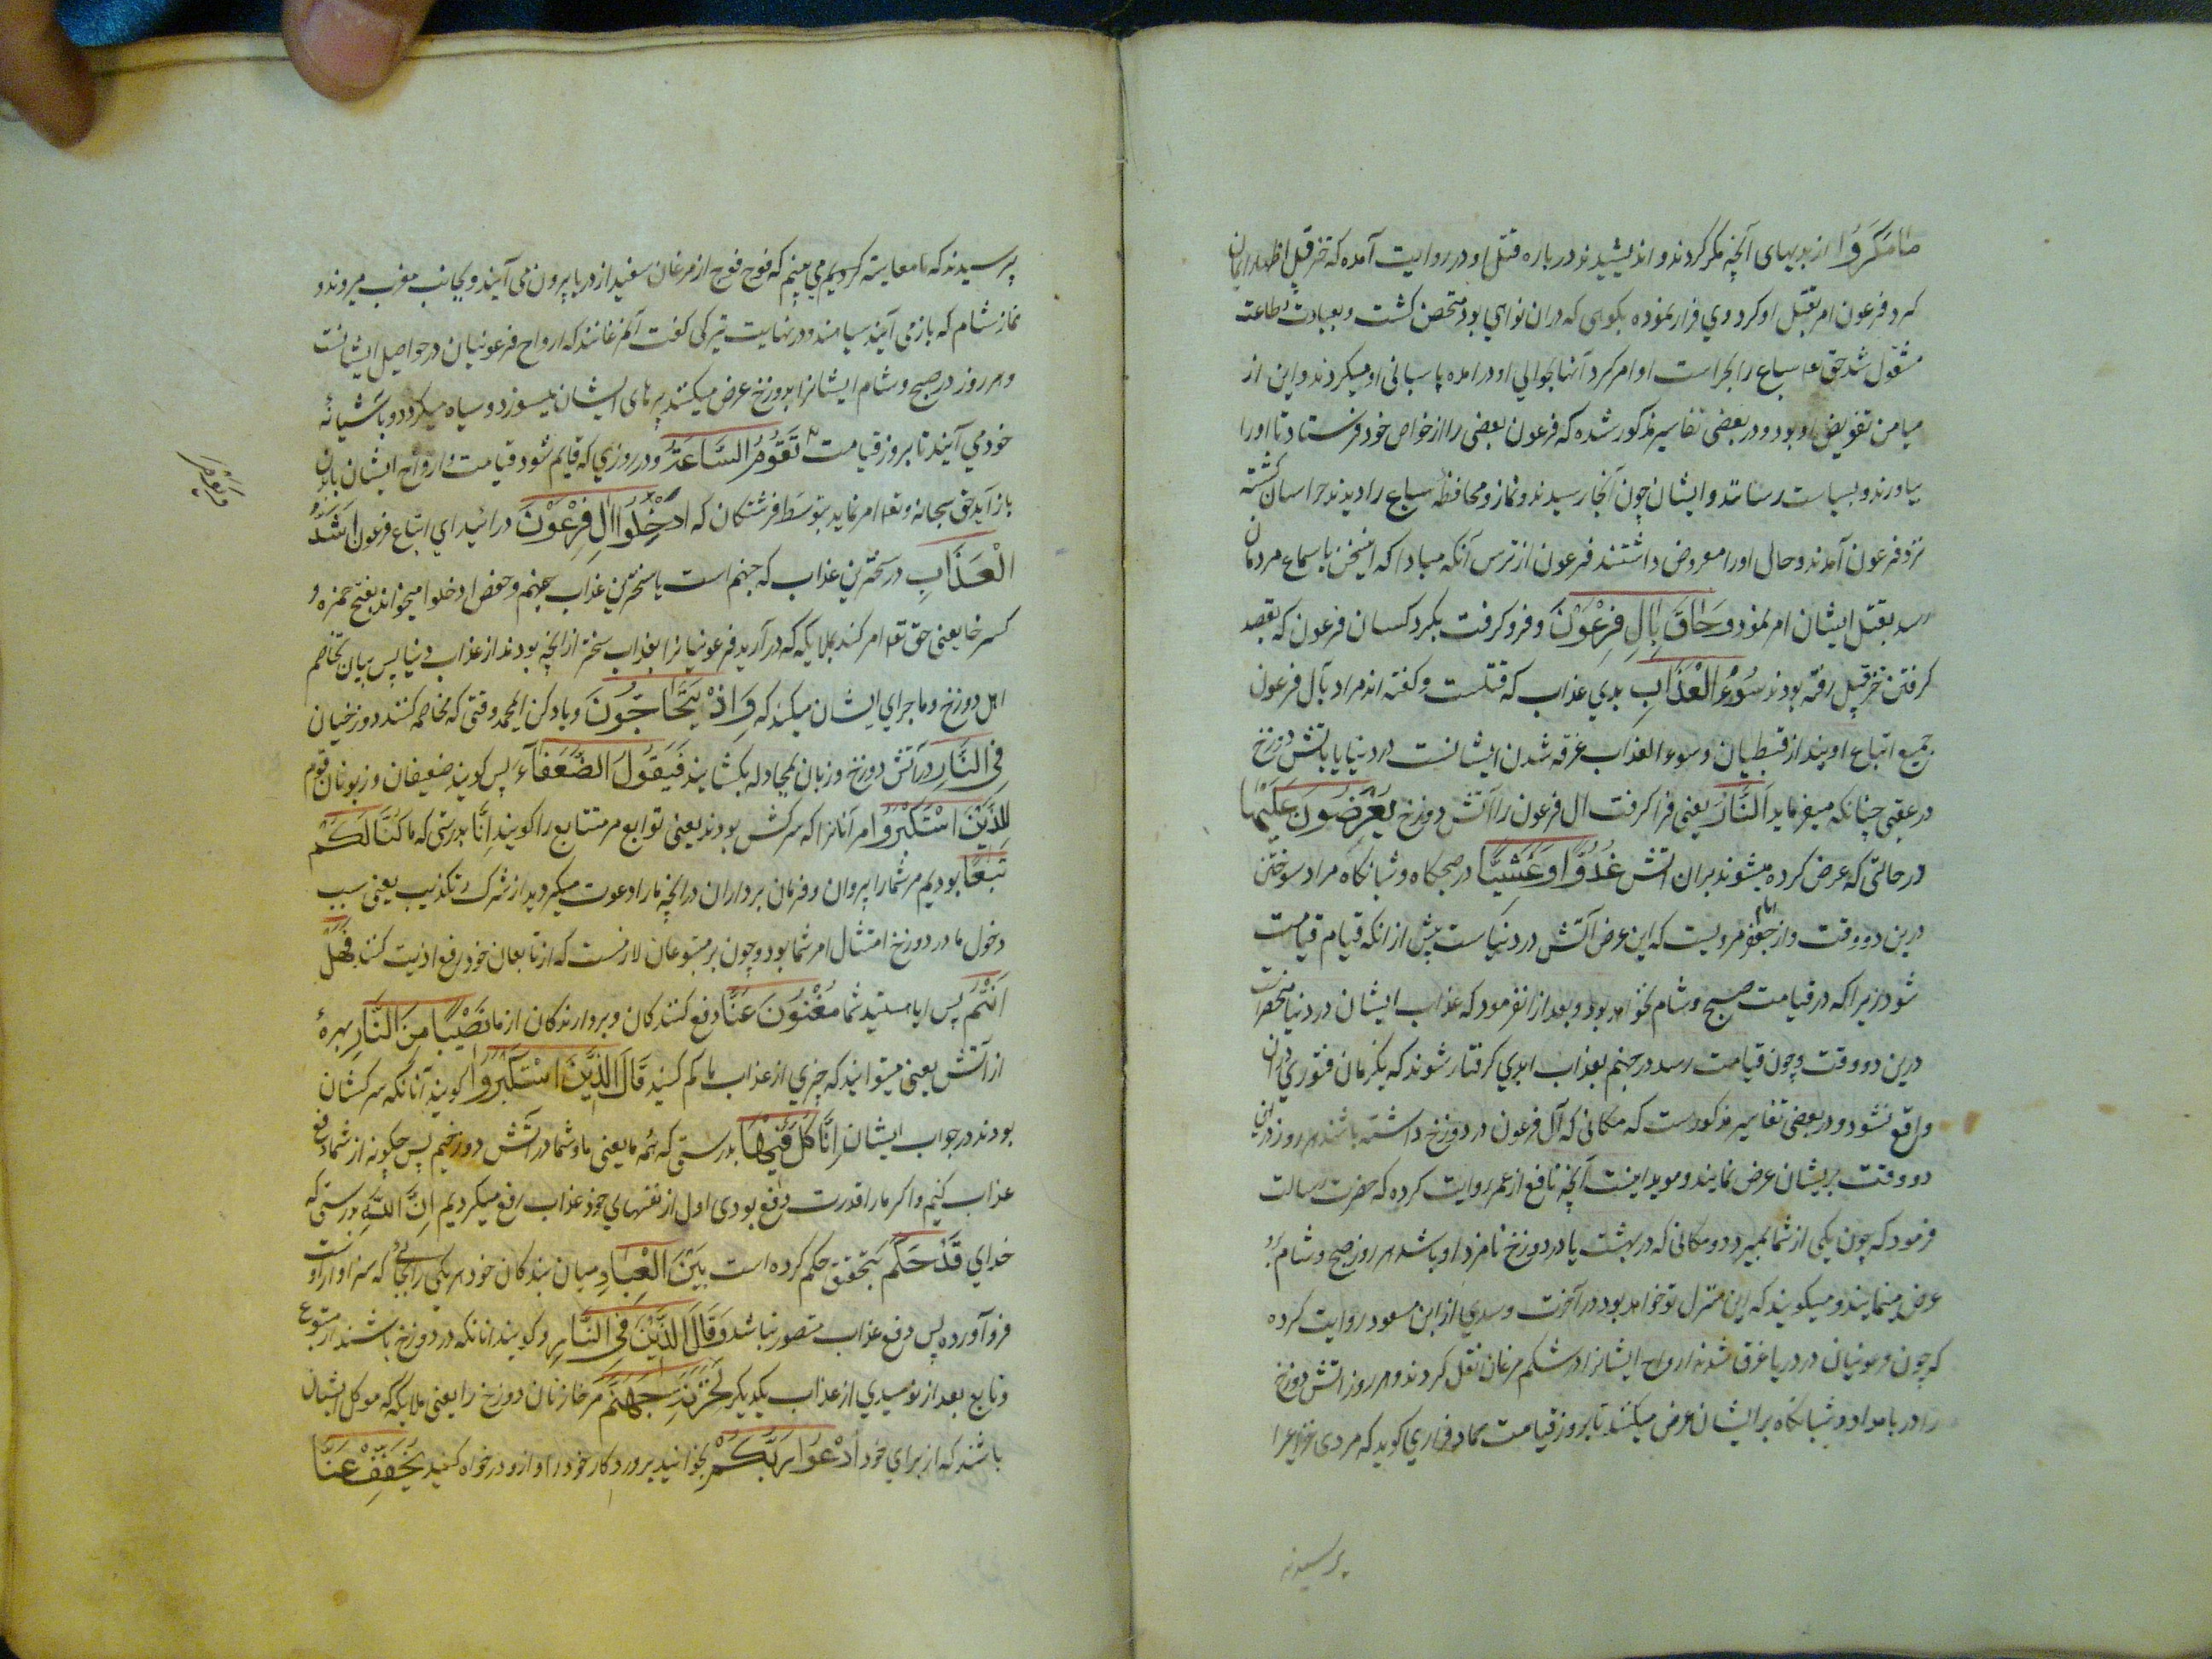 ما مَكَرُوا از بدیهای آنچه مکر کردند و اندیشیدند در باره قتل او در روایت آمده که خزقیل اظهار ایمان
کرد فرعون امر بقتل او کرد وی فرار نموده بکوهی که دران نواحی بود متحصن کشت و بعبادت و طاعت
مشغول شد حق تعا سباع را بحراست او امر کرد آنها بحوالی او درامده پاسبانی او میکردند و این از
میامن تفویض او بود و در بعضی تفاسیر مذکور شده که فرعون بعضی را از خواص خود فرستاد تا او را
بیاورند و بسیاست رسانند و ایشان چون آنجا رسیدند و نماز و محافظهٔ سباع را دیدند هراسان کشته
نزد فرعون آمدند و حال او را معروض داشتند فرعون از ترس آنکه مبادا که اینسخن باسماع مردمان
رسد بقتل ایشان امر نمود وَحَاقَ بِآلِ فِرْعَوْنَ و فرو کرفت بکرد کسان فرعون که بقصد
کرفتن خزقیل رفته بودند سُوءُ الْعَذَابِ بدی عذاب که قتلست و کفته اند مراد بآل فرعون
جمیع اتباع اویند از قبطیان و سوء العذاب غرقه شدن ایشانست در دنیا یا باتش دوزخ
در عقبی چنانکه میفرماید اَلنَّارُ یعنی فرا کرفت ال فرعون را آتش دوزخ يُعْرَضُونَ عَلَيْهَا
در حالتی که عرض کرده میشوند بران اتش غُدُوًّا وَعَشِيًّا در صبحکاه و شبانکاه مراد سوختن
درین دو وقت و از امام جعفر مرویست که این عرض آتش در دنیاست پیش از انکه قیام قیامت
شود زیرا که در قیامت صبح و شام نخواهد بود و بعد از ان فرمود که عذاب ایشان در دنیا منحصرست
درین دو وقت و چون قیامت رسد در جهنم بعذاب ابدی کرفتار شوند که یکزمان فتوری در ان
واقع نشود و در بعضی تفاسیر مذکورست که مکانی که آل فرعون در دوزخ داشته باشند هر روز در این
دو وقت بریشان عرض نمایند و موید اینست آنچه نافع از عمر روایت کرده که حضرت رسالت
فرمود که چون یکی از شما بمیرد و مکانی که در بهشت یا در دوزخ نامزد او باشد هر روز صبح و شام برو
عرض مینمایند و میکویند که این منزل تو خواهد بود در آخرت و سدی از ابن مسعود روایت کرده
که چون فرعونیان در دریا غرق شدند ارواح ایشانرا در شکم مرغان نقل کردند و هر روز اتش دوزخ
را در بامداد و شبانکاه بر ایشان عرض میکنند تا بروز قیامت حماد فزاری کوید که مردی
پرسیدند
پرسیدند که ما معاینه کردیم می بینم که فوج فوج از مرغان سفید از دریا بیرون می آیند و بجانب مغرب میروند و
نماز شام که باز می آیند سیاهند و در نهایت تیرکی کفت آنمرغانند که ارواح فرعونیان در حواصل ایشانست
و هر روز در صبح و شام ایشانرا بدوزخ عرض میکنند پرهای ایشان میسوزد و سیاه میکردد و باشیانهٔ
خود می آیند تا بروز قیامت تَقُومُ السَّاعَةُ و در روزی که قایم شود قیامت و ارواح ایشان بابدان
وَيَوْمَ
باز آید حق سبحانه و تعا امر نماید بتوسط فرشتکان که اَدْخِلُوا آلَ فِرْعَوْنَ درائید ای اتباع فرعون اَشَدَّ
الْعَذَابِ در سخترین عذاب که جهنم است یا سخترین عذاب جهنم و حفص ادخلوا میخواند بفتح همزه و
کسر خا یعنی حق تعا امر کند بملایکه که در آرید فرعونیانرا بعذاب سختر از انچه بودند از عذاب دنیا پس بیان تخاصم
اهل دوزخ و ماجرای ایشان میکند که وَاِذْ يَتَحَاجُّونَ و یاد کن ای محمد وقتی که مخاصمه کنند دوزخیان
فِي النَّارِ در آتش دوزخ و زبان بمجادله بکشایند فَيَقُولُ الضُّعَفَآءُ پس کویند ضعیفان و زبونان قوم
لِلَّذِينَ اسْتَكْبَرُوا مر آنانرا که سرکش بودند یعنی توابع مر متتابع را کویند اِنَّا بدرستی که ما كُنَّا لَكُمْ
تَبَعًا بودیم مر شما را پیروان و فرمان برداران در انچه ما را دعوت میکردید از شرک و تکذیب یعنی سبب
دخول ما در دوزخ امتثال امر شما بود و چون بر متبوعان لازمست که از تابعان خود رفع اذیت کنند فَهَلْ
اَنْتُمْ پس ایا هستید شما مُغْنُونَ عَنَّا دفع کنندکان و بردارندکان از ما نَصِيبًا مِنَ النَّارِ بهرهٔ
از آتش یعنی میتوانید که چیزی از عذاب ما کم کنید قَالَ الَّذِينَ اسْتَكْبَرُوا کویند آنانکه سرکشان
بودند در جواب ایشان اِنَّا كُلٌّ فِيهَا بدرستی که همه ما یعنی ما و شما در آتش دوزخیم پس چکونه از شما دفع
عذاب کنیم و اکر ما را قدرت دفع بودی اول از نفسهای خود عذاب رفع میکردیم اِنَّ اللّٰهَ بدرستی که
خدای قَدْ حَكَمَ بتحقیق حکم کرده است بَيْنَ الْعِبَادِ میان بندکان خود هر یکی را بجائی که سزاوار اوست
فرو آورده پس دفع عذاب متصور نباشد وَقَالَ الَّذِينَ فِي النَّارِ و کویند انانکه در دوزخ باشند از متبوع
و تابع بعد از نومیدی از عذاب یکدیکر لِخَزَنَةِ جَهَنَّمَ مر خازنان دوزخ را یعنی ملایکه که موکل ایشان
باشند که از برای خود اُدْعُوا رَبَّكُمْ بخوانید پروردکار خود را و ازو درخواه کنید يُخَفِّفْ عَنَّا